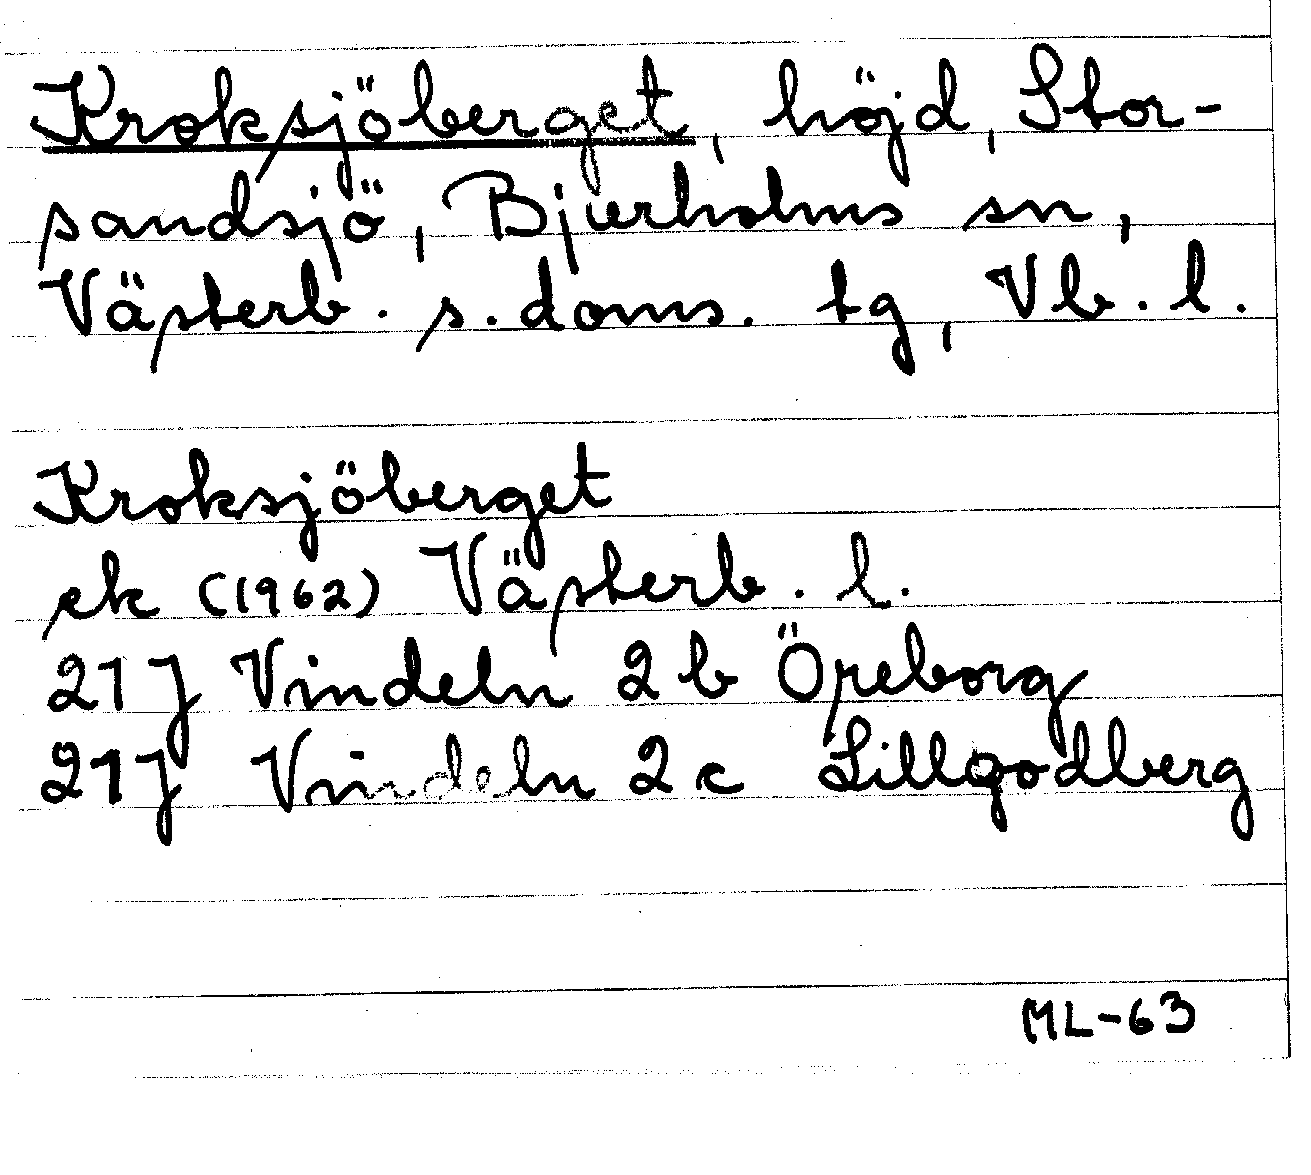 Kroksjöberget, höjd, Stor-
sandsjö, Bjurholms sn,
Västerb. s. doms. tg, Vb. l.
Kroksjöberget
ek (1962) Västerb. l.
21J Vindeln 2b Öreborg
21J Vindeln 2c Lillgodberg
ML-63